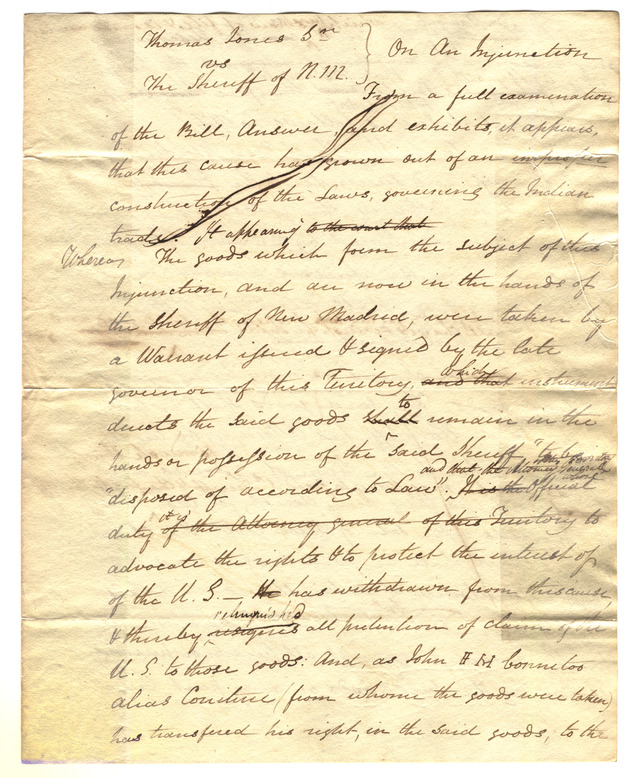 Thomas Jones Sr
vs
The Sheriff of N. M.
On An Injunction
From a full examination
of the Bill, Answer, and exhibits, it appears,
that this cause has grown out of an improper
construction of the Laws, governing the Indian
trade. It appearing to the court that
Whereas The goods which form the subject of this
Injunction, and are now in the hands of
the Sheriff of New Madrid, were taken by
a Warrant issued & signed by the late
governor of this Territory, and that which instrument
directs the said goods shall to remain in the
hands or possession of the said Sheriff "to be
and that the Attorney General
"disposed of according to Law". It is the Official
duty it is of the Attorney general of this Territory to
advocate the rights & to protect the interest of
of the U. S. — He has withdrawn from this cause
relinquished
& thereby resignes all pretention of claim of the
U. S. to those goods: And, as John
alias (from whome the goods were taken)
has transfered his right, in the said goods, to the